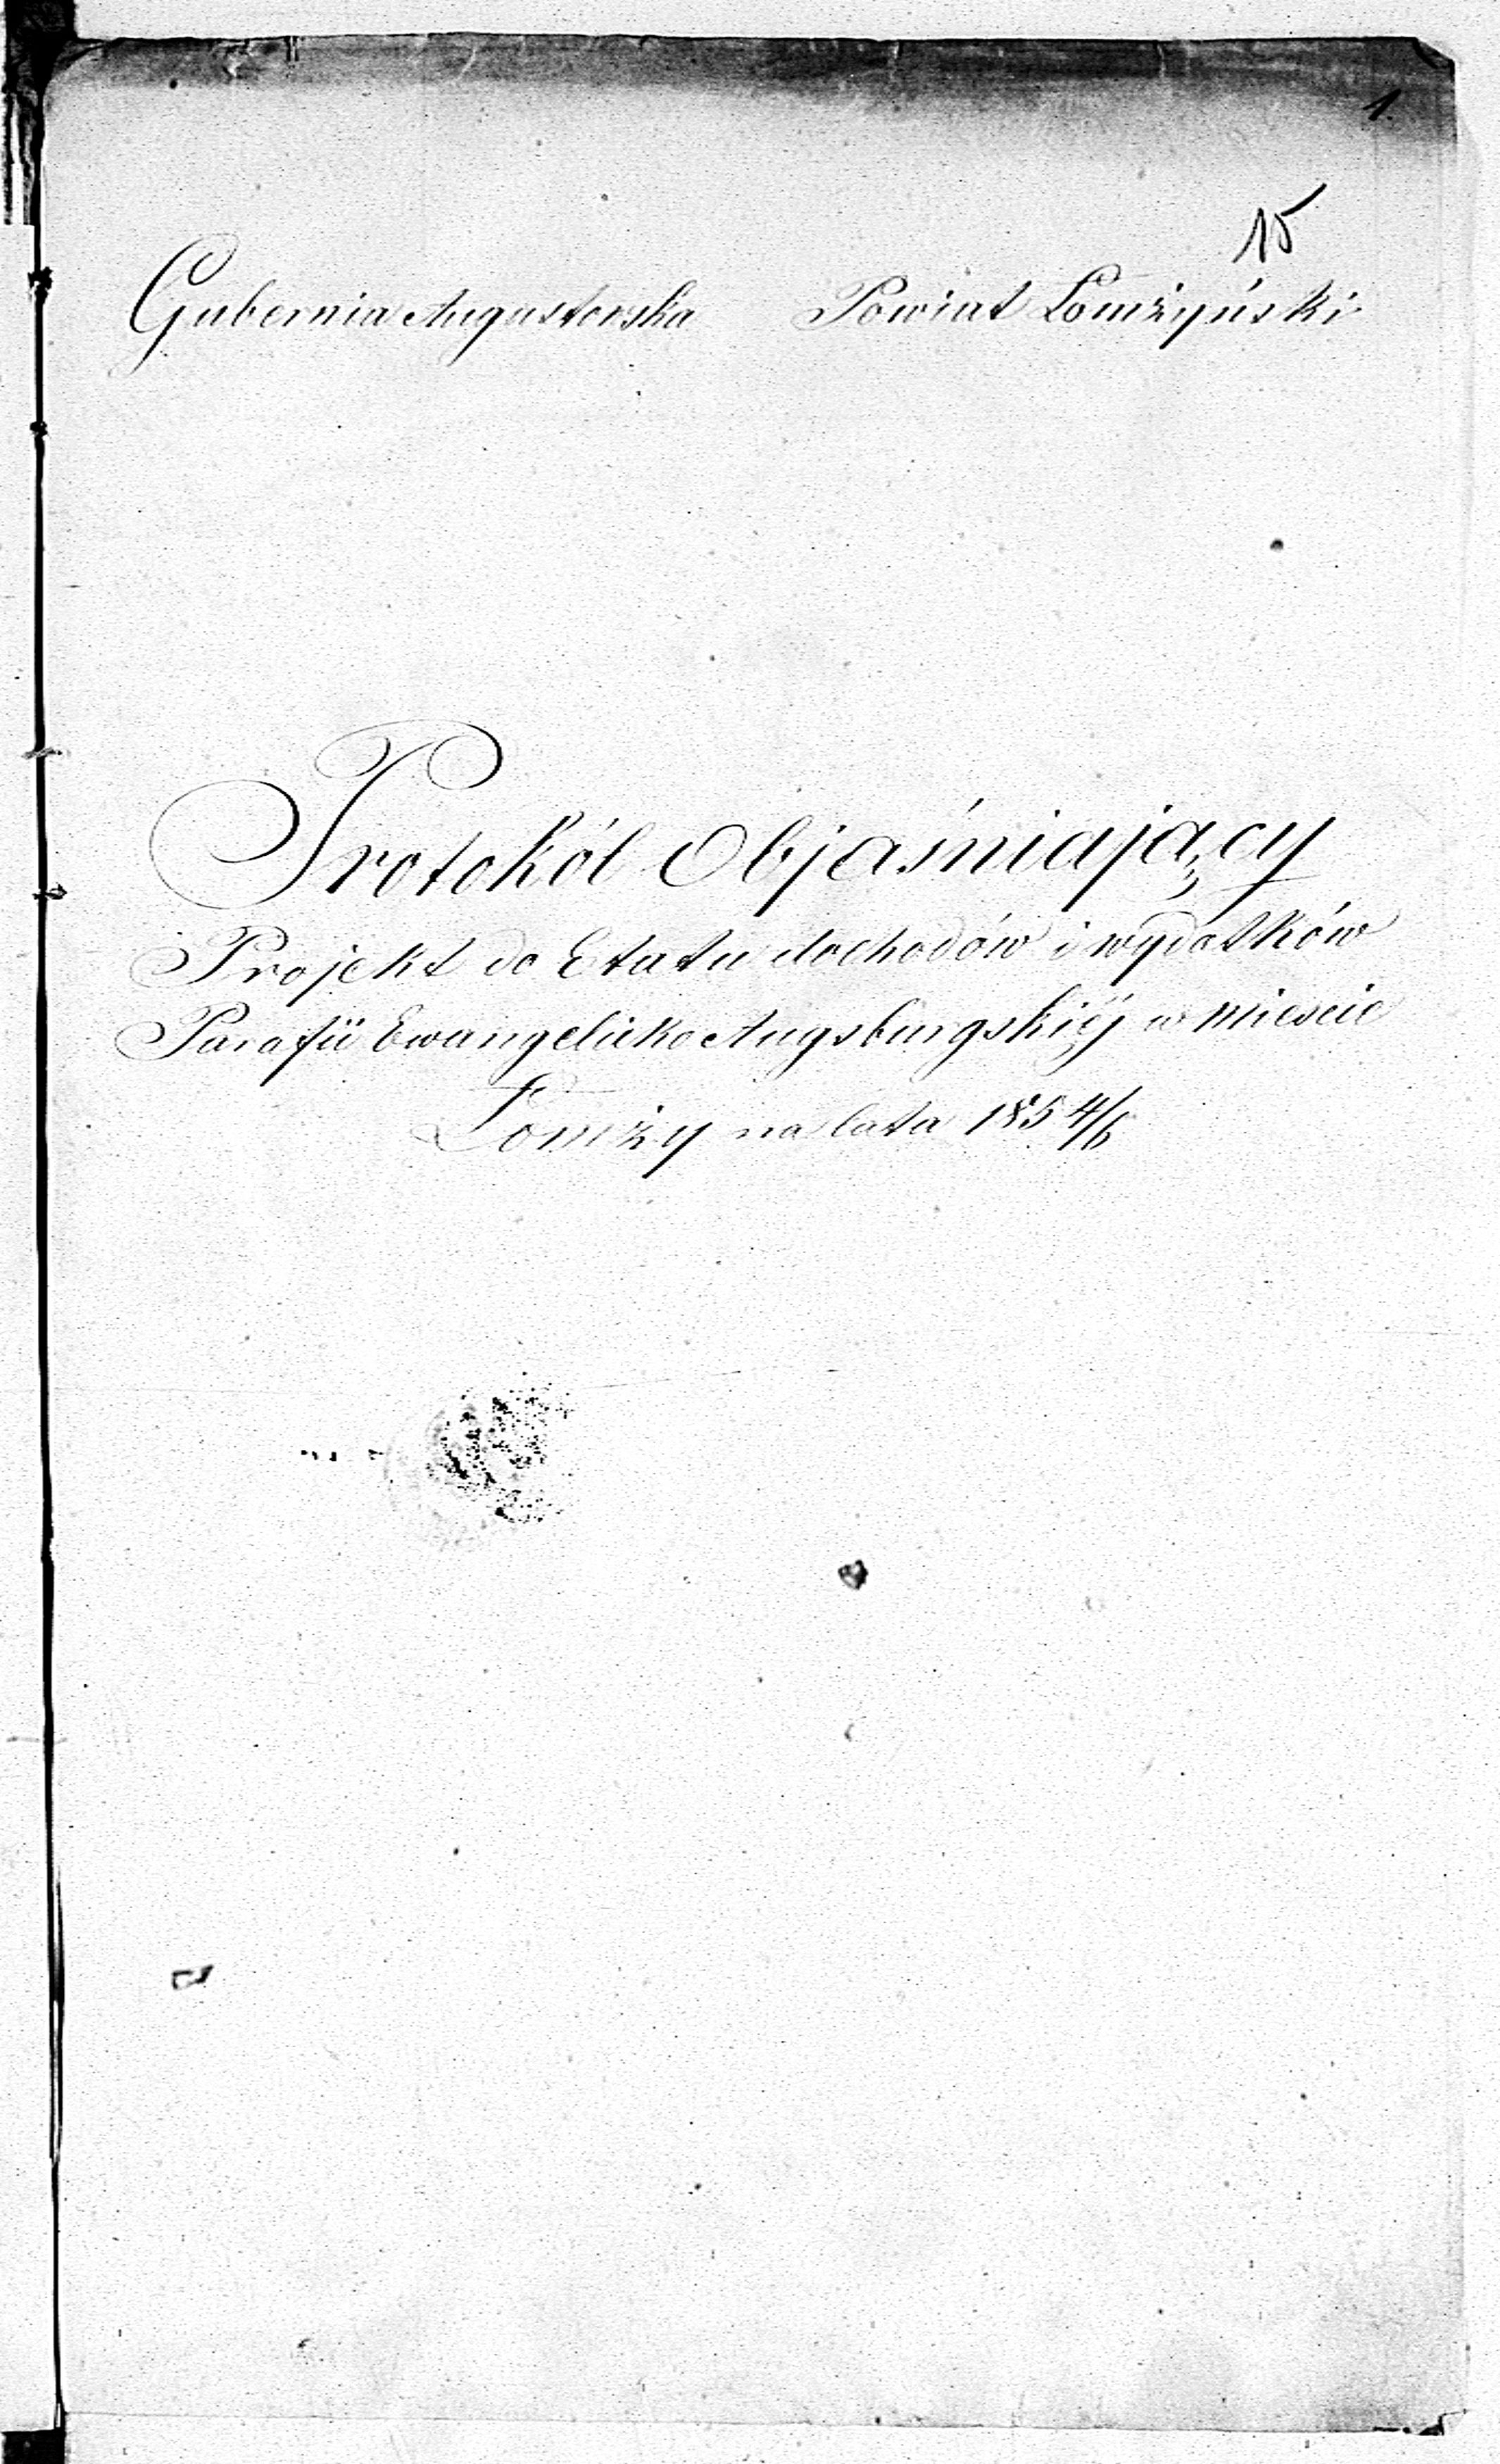 1
15
Gubernia Augustowska Powiat Łomżyński
Protokół Objaśniający
Projekt do Etatu dochodów i wydatków
Parafii Ewangelicko Augsburgskiéj w mieście
Łomży na lata 1854/6